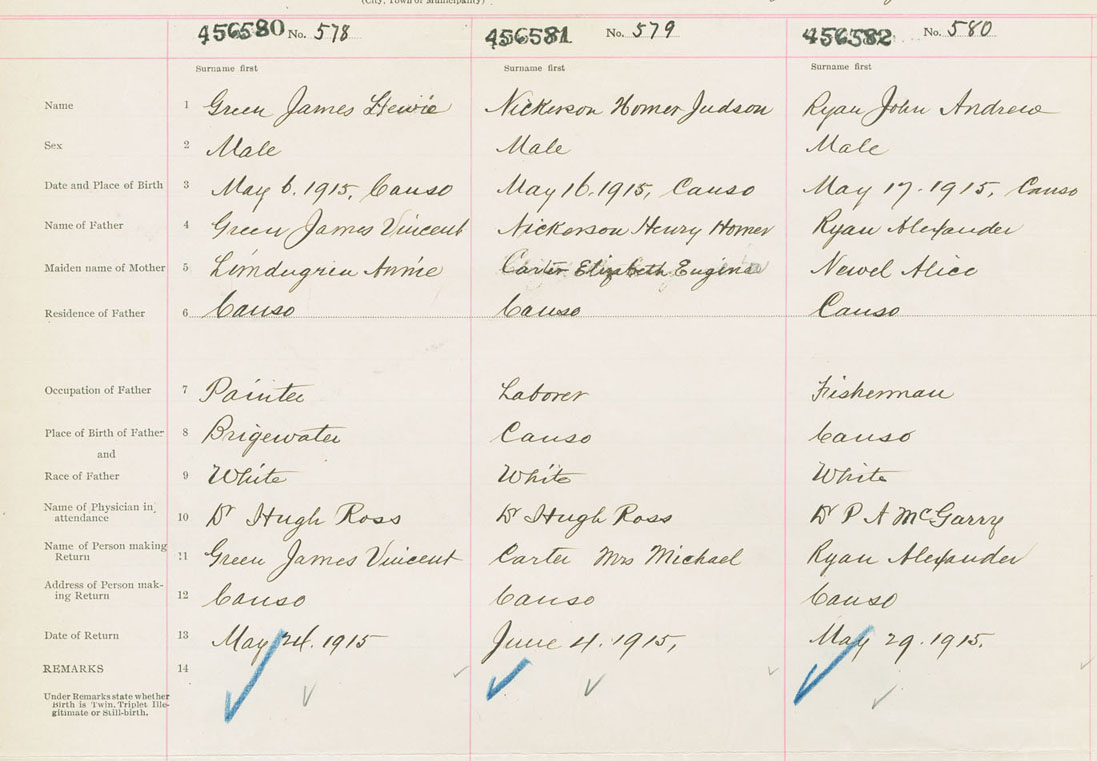 (City, Town or Municipality)
456580 No. 578 456581 No. 579 456582 No. 580
Surname first Surname first Surname first
Name 1 Green James Hewie Nickerson Homer Judson Ryan John Andrew
Sex 2 Male Male Male
Date and Place of Birth 3 May 6. 1915, Canso May 16. 1915, Canso May 17. 1915, Canso
Name of Father 4 Green James Vincent Nickerson Henry Homer Ryan Alexander
Maiden name of Mother 5 Annie Carter Elizabeth Eugena Newel Alice
Residence of Father 6 Canso Canso Canso
Occupation of Father 7 Painter Laborer Fisherman
Place of Birth of Father 8 Brigewater Canso Canso
and
Race of Father 9 White White White
Name of Physician in attendance 10 Dr Hugh Ross Dr Hugh Ross Dr P A McGarry
Name of Person making Return 11 Green James Vincent Carter Mrs Michael Ryan Alexander
Address of Person mak-
ing Return 12 Canso Canso Canso
Date of Return 13 May 24. 1915 June 4. 1915, May 29. 1915.
REMARKS 14
Under Remarks state whether
Birth is Twin, Triplet Ille-
gitimate or Still-birth.